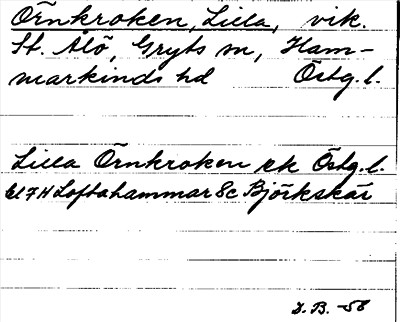 Örnkroken, Lilla, vik.
St. Ålö, Gryts sn, Ham-
markinds hd Östg.l.
Lilla Örnkroken ek Östg.l.
bl 7H Loftahammar 8c Björkskär
I.B. -58